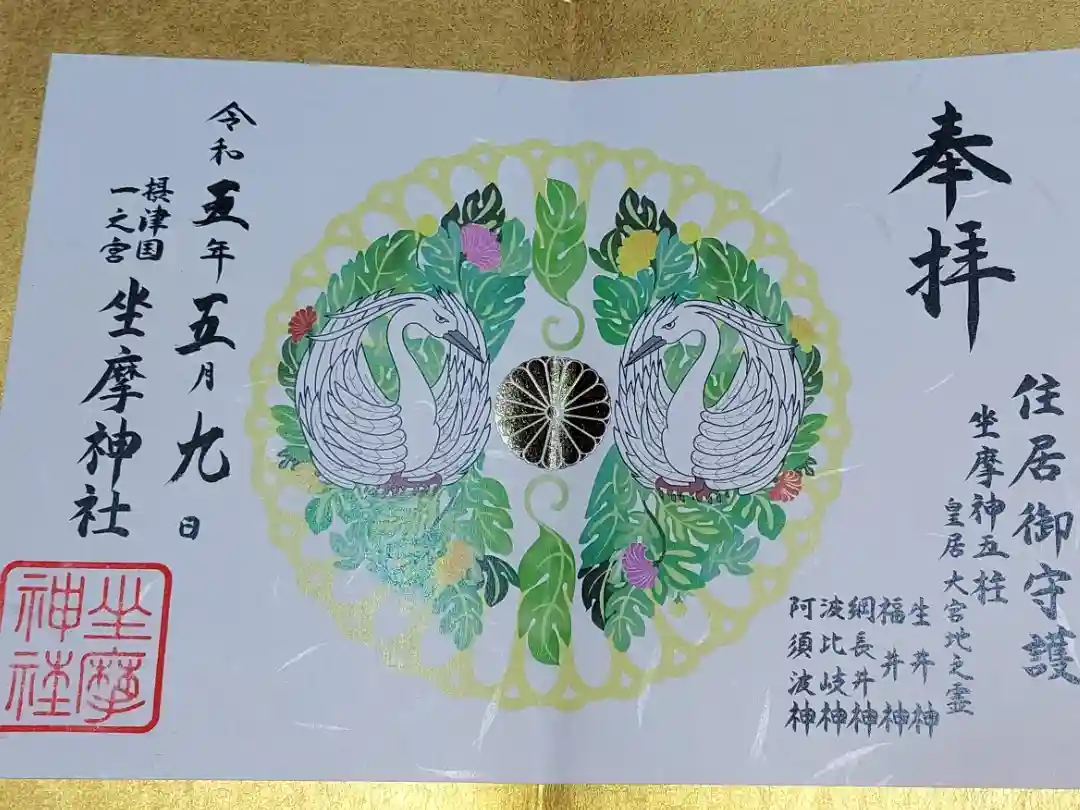 奉拝
住居御守護
坐摩神五柱
皇居 大宮地之霊
生井神
福井神
綱長井神
波比岐神
阿須波神
令和五年五月九日
摂津国
一之宮
坐摩神社
坐摩
神社